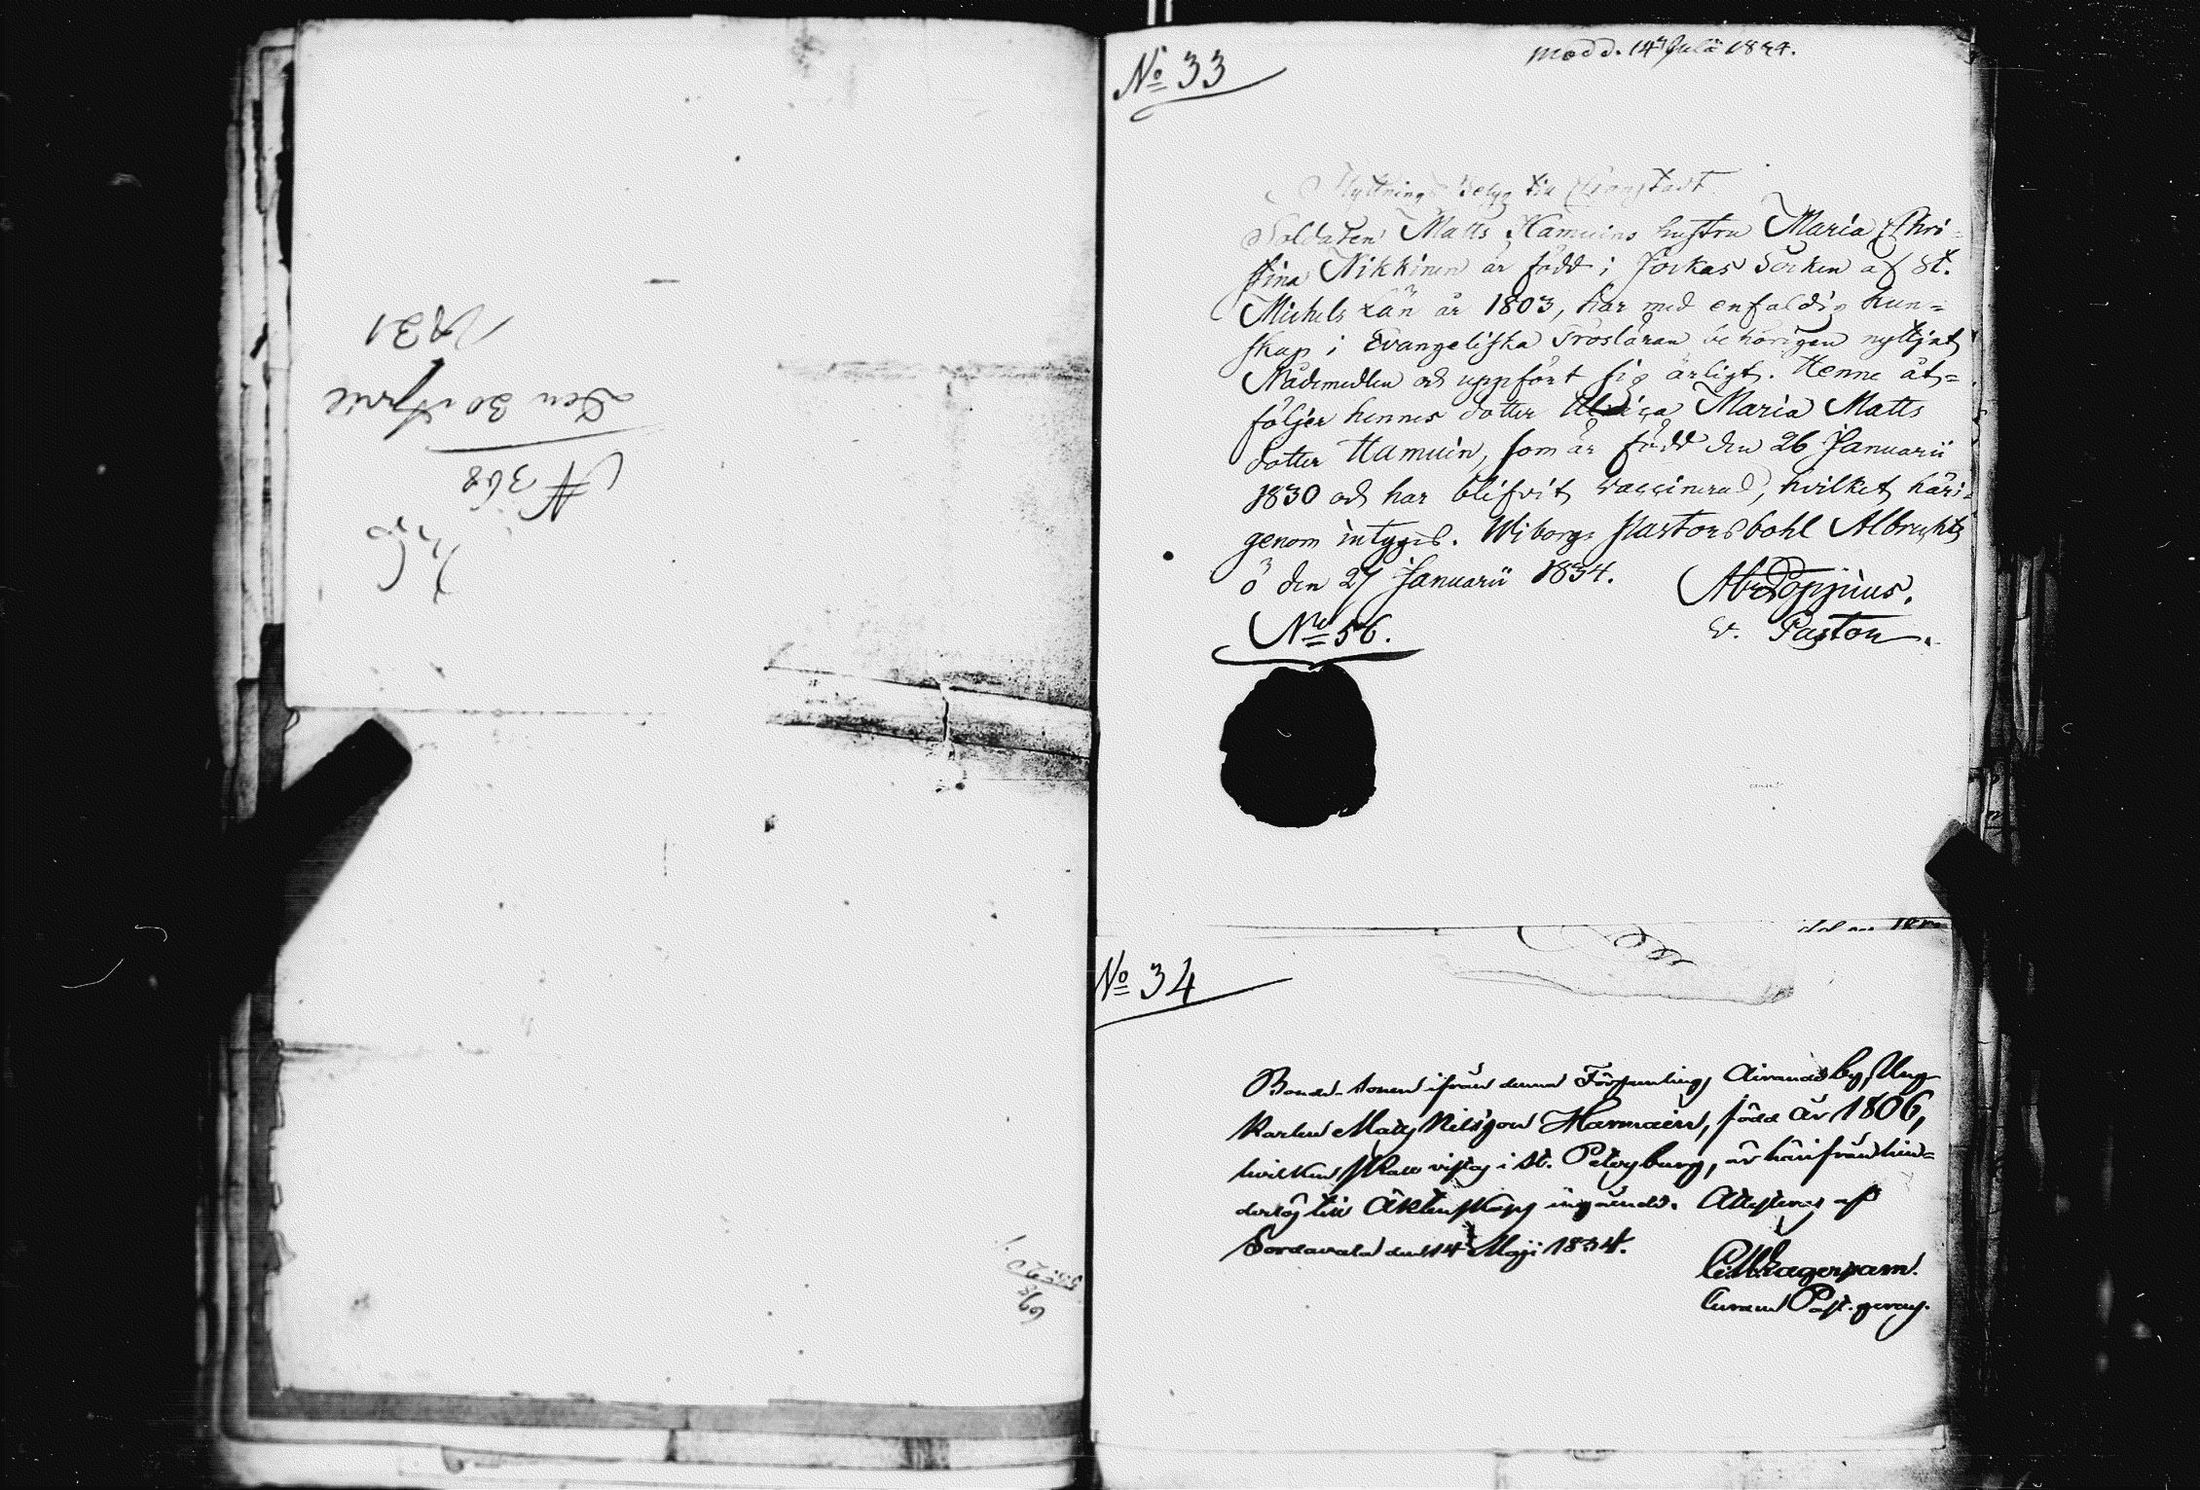 Den 30 Aprill
1831
N 368
No 33
Modd. 14 Julii 1834.
Flyttnings Betyg till Cronstadt.
Soldaten Matts Hämuins hustru Maria Chri-
stina Nikkinen är född i Jockas Socken af St.
Michels Län år 1803, har med enfaldig kun=
skap i Evangeliska Trosläran behörigen nyttjat
Nådemedlen och uppfört sig ärligt. Henne åt=
följer hennes dotter Maria Matts
dotter Hamuin, som är född den 26 Januarii
1830 och har blifvit vaccinerad, hvilket häri=
genom intygas. Wiborgs Pastorsbohl Albrechts
ö den 27 Januarii 1834.
Poppius.
V. Pastor.
No 56.
No 34
Bonde-sonen ifrån denna Församling, by, Ung
Karlen Matts Nilsson Hamuin, född år 1806,
hvilken skall vistas i St. Petersburg, är härifrån hin=
derlös till Äktenskaps ingående. Attesteras af
Sordavala den 14 Maji 1834.
Lagerstam.
Past.